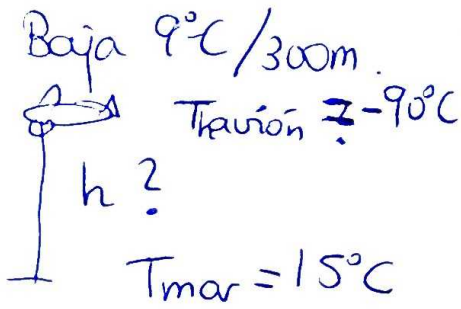 Baja 9°C/300m.
Tavión = -90°C
h?
Tmar = 15°C